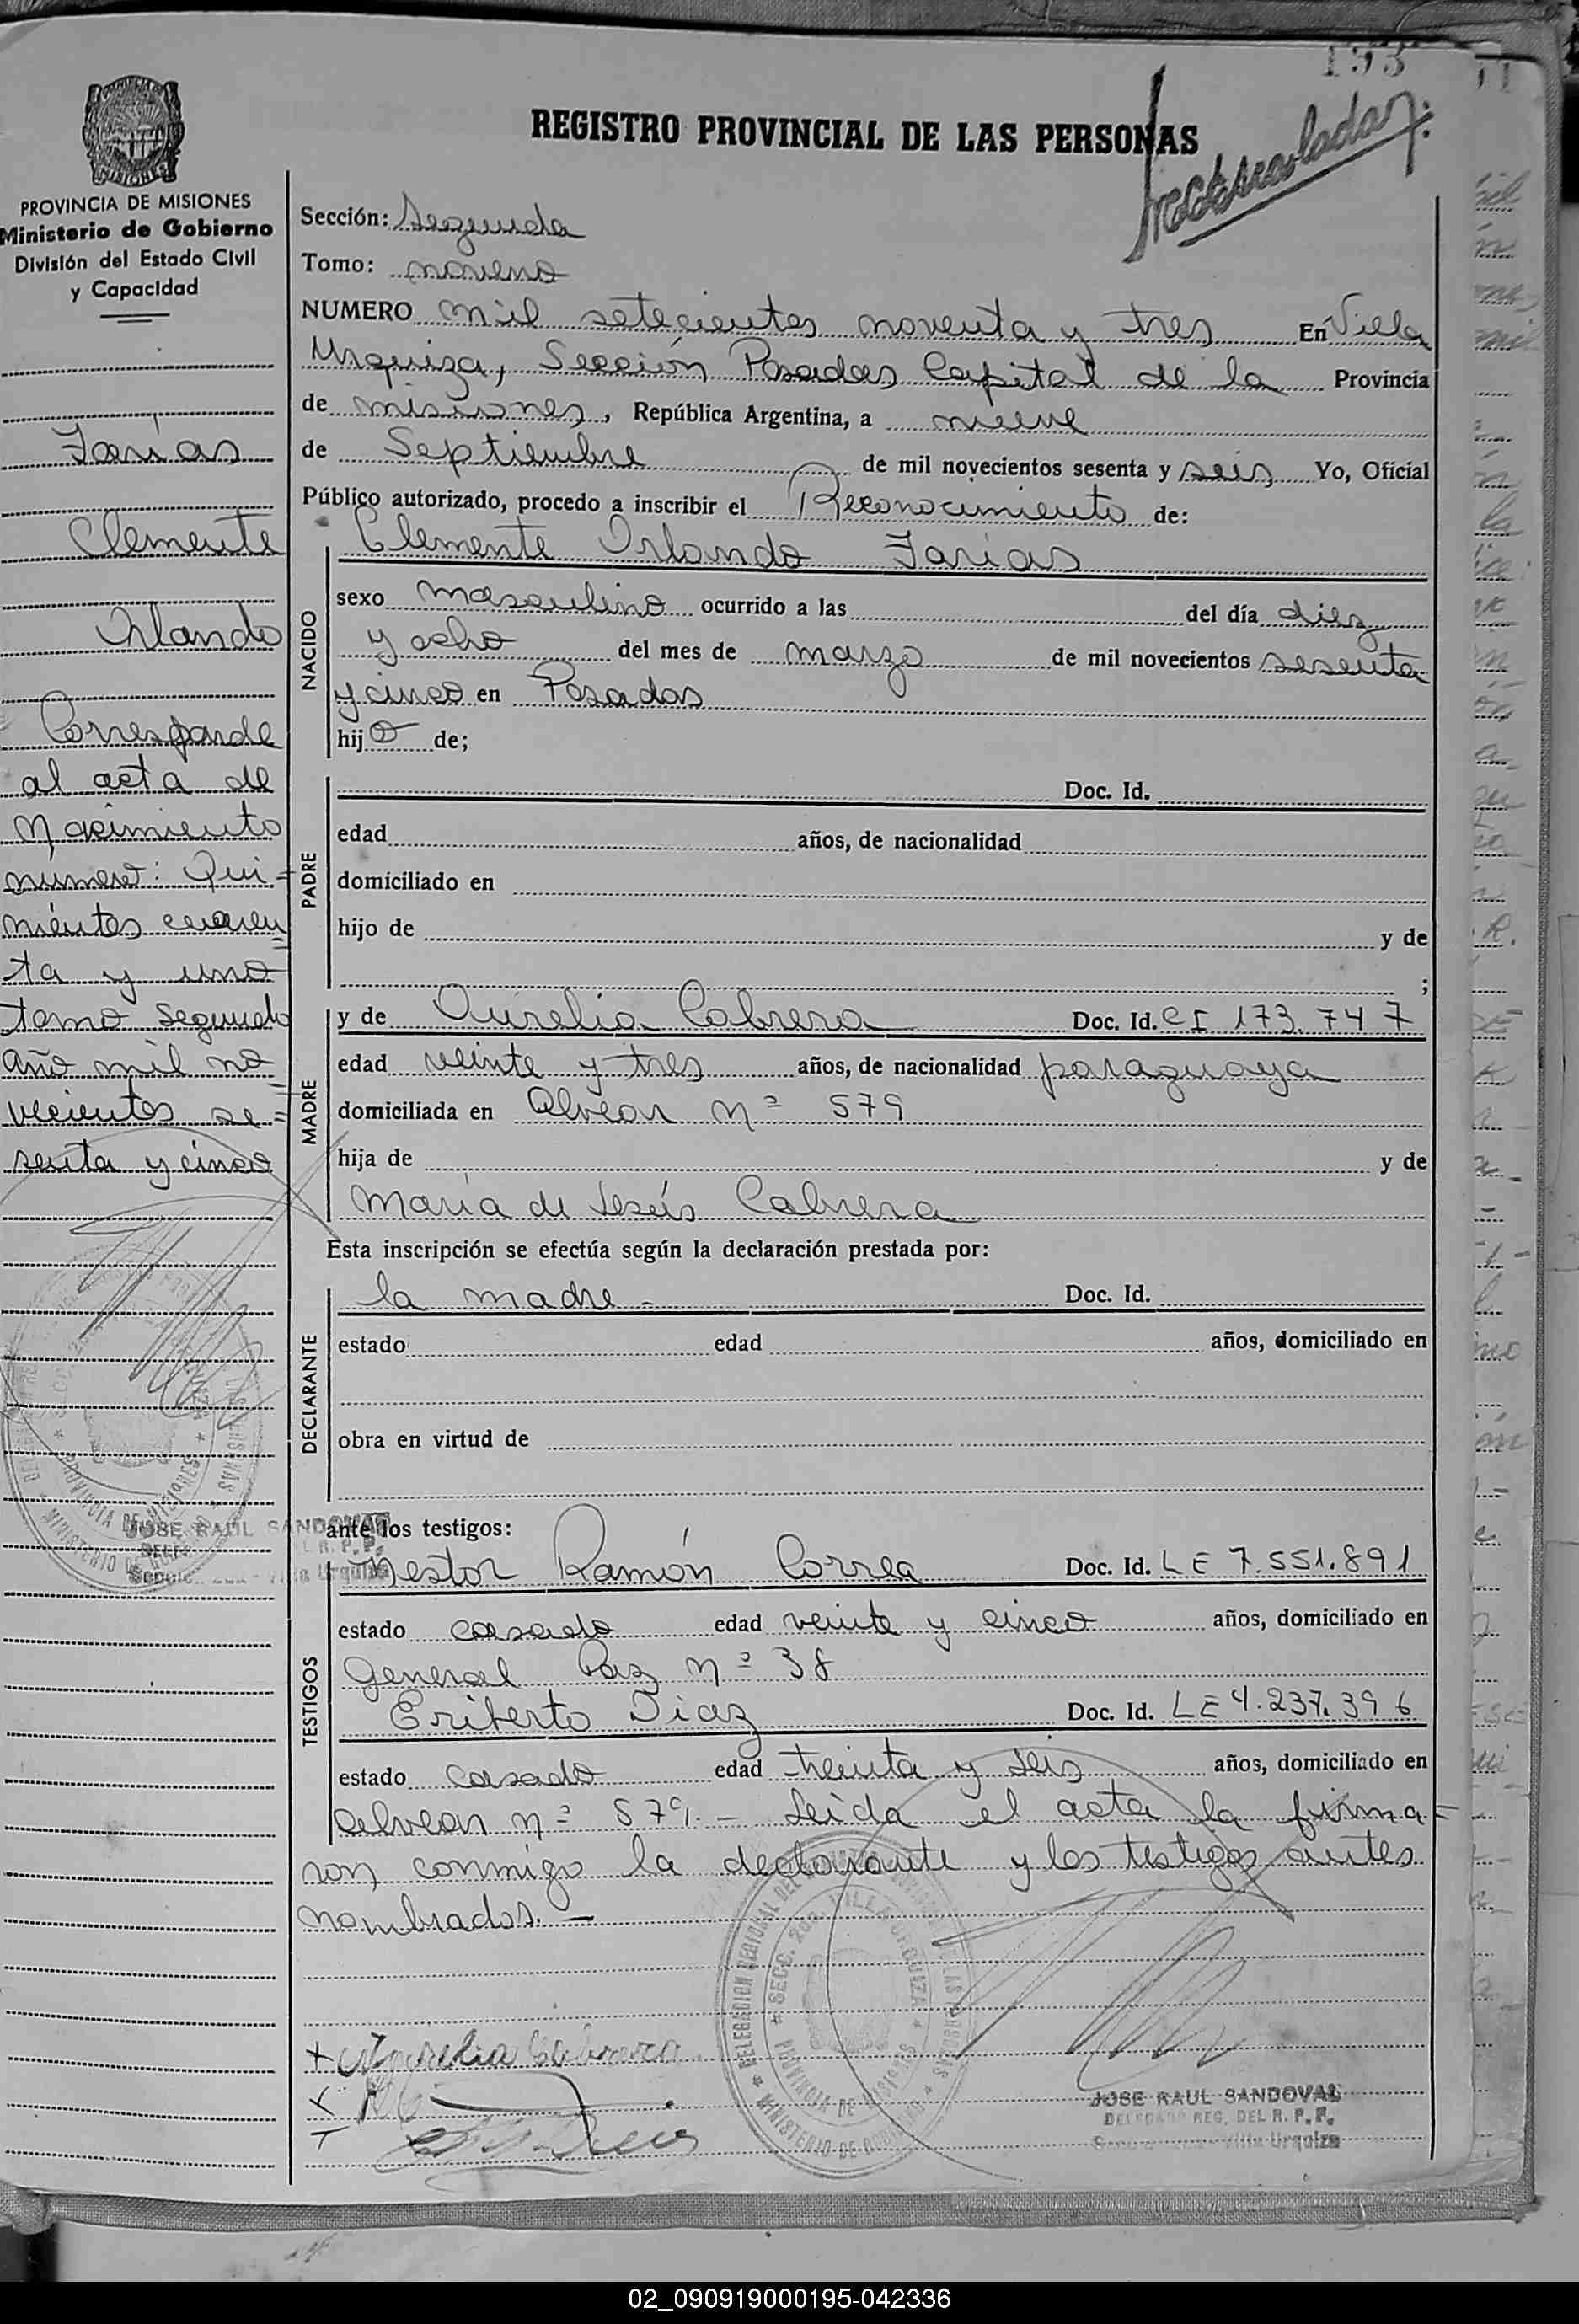 193
REGISTRO PROVINCIAL DE LAS PERSONAS
PROVINCIA DE MISIONES
Ministerio de Gobierno
División del Estado Civil
y Capacidad
Farías
Clemente
Orlando
Corresponde
al acta de
Nacimiento
numero: Qui=
nientos cuaren=
ta y uno
tomo segundo
año mil no=
vecientos se=
senta y cinco
JOSE RAUL SANDOVAL
Sección: Segunda
Tomo: noveno
NUMERO mil setecientos noventa y tres En Villa
Urquiza, Sección Posadas Capital de la Provincia
de misiones, República Argentina, a nueve
de Septiembre de mil novecientos sesenta y seis Yo, Oficial
Público autorizado, procedo a inscribir el Reconocimiento de:
NACIDO
Clemente Orlando Farías
sexo masculino ocurrido a las del día diez
y ocho del mes de marzo de mil novecientos sesenta
y cinco en Posadas
hijo de;
PADRE
Doc. Id.
edad años, de nacionalidad
domiciliado en
hijo de y de
;
MADRE
y de Aurelia Cabrera Doc. Id. CI 173.747
edad veinte y tres años, de nacionalidad paraguaya
domiciliada en Alvear Nº 579
hija de y de
María de Jesús Cabrera
Esta inscripción se efectúa según la declaración prestada por:
DECLARANTE
la madre - Doc. Id.
estado edad años, domiciliado en
obra en virtud de
ante los testigos:
TESTIGOS
Nestor Ramón Correa Doc. Id. LE 7.551.891
estado casado edad veinte y cinco años, domiciliado en
General Paz Nº 38
Eriberto Diaz Doc. Id. LE 4.237.396
estado casado edad treinta y seis años, domiciliado en
Alvear nº 579.- Leída el acta la firma=
ron conmigo la declarante y los testigos antes
nombrados. -
+ Aurelia Cabrera
DELEGACION REGIONAL DEL
SECC. 2da. VILLA URQUIZA
PROVINCIA DE MISIONES
MINISTERIO DE GOBIERNO
JOSE RAUL SANDOVAL
DELEGADO REG. DEL R. P. P.
Villa Urquiza
02_090919000195-042336